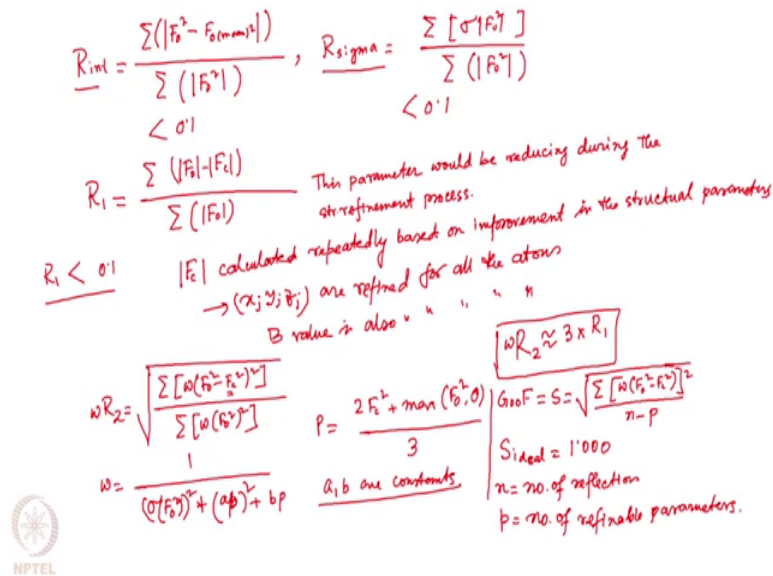 R_int = Σ(|F_o² - F_o(mean)²|) / Σ(|F_o²|) , R_sigma = Σ[σ(F_o²)] / Σ(|F_o²|)
< 0.1 < 0.1
R₁ = Σ(|F_o|-|F_c|) / Σ(|F_o|) This parameter would be reducing during the
str. refinement process.
R₁ < 0.1 |F_c| calculated repeatedly based on improvement in the structural parameters
→ (x_j y_j z_j) are refined for all the atoms
B value is also " " " " "
wR₂ ≈ 3 × R₁
wR₂ = √(Σ[w(F_o²-F_c²)²] / Σ[w(F_o²)²]) P = (2F_c² + max(F_o², 0)) / 3
w = 1 / ((σ(F_o²))² + (ap)² + bp) a, b are constants
GooF = S = √(Σ[w(F_o²-F_c²)]² / n-p)
S_ideal = 1.000
n = no. of reflection
p = no. of refinable parameters.
NPTEL